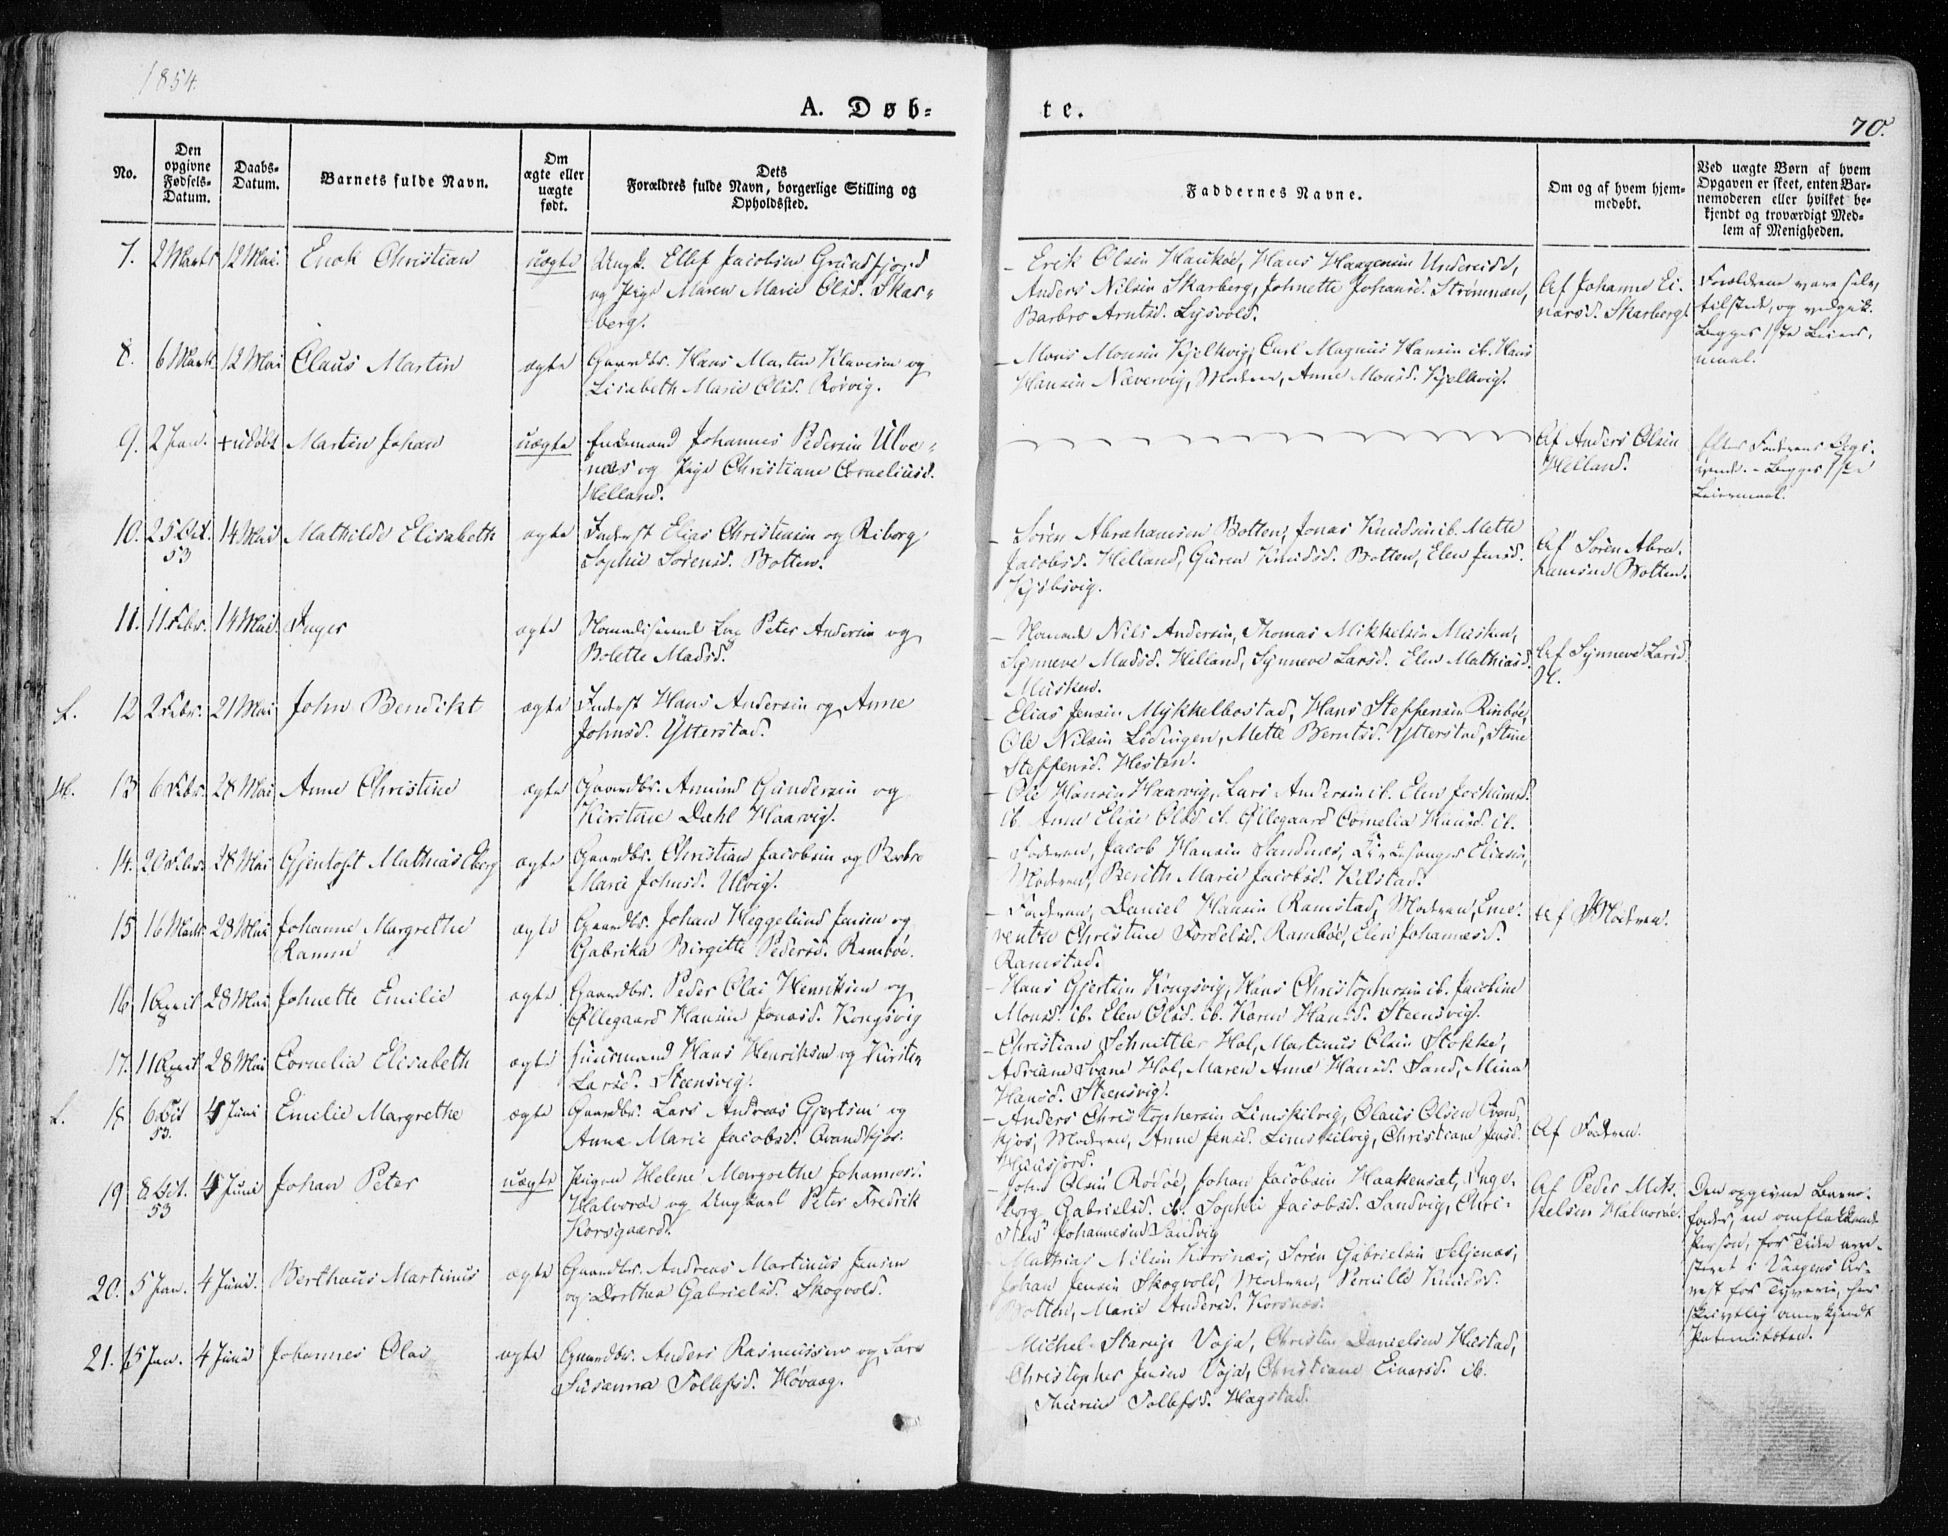 1854.
A. Døb=
te.
70.
No.
Den
opgivne
Fødsels-
Datum.
Daabs-
Datum.
Barnets fulde Navn.
Om
ægte eller
uægte
født.
Dets
Forældres fulde Navn, borgerlige Stilling og
Opholdssted.
Faddernes Navne.
Om og af hvem hjem-
medøbt.
Ved uægte Børn af hvem
Opgaven er skeet, enten Bar-
nemoderen eller hvilket be-
kjendt og troværdigt Med-
lem af Menigheden.
7. 2 Marts 12 Mai Enok Christian uægte Ungk. Ellef Jacobsen Grundfjord
og Pige Maren Marie Olsd. Skar-
berg.
Erik Olsen Haukøe, Hans Haagensen Undereidet,
Anders Nilsen Skarberg, Johnette Johansd. Strømnæs,
Barbro Arntsd. Lysvold.
Af Johanne Ei-
narsd. Skarberg
Forældrene vare selv
tilstede, og vedgik.
Begges 1ste Leier-
maal.
8. 6 Marts 12 Mai Claus Martin ægte Gaardbr. Hans Martin Klausen og
Lisabeth Marie Olsd. Rørvig.
Mons Monsen Kjelkvig, Carl Magnus Hansen ib. Hans
Hansen Nævervig, Moderen, Anne Monsd. Kjelkvig.
9. 2 Jan. + udøbt Martin Johan uægte Enkemand Johannes Pedersen Ulve-
næs og Pige Christiane Corneliusd.
Helland.
Af Anders Olsen
Helland.
Efter Faderens Opgi-
vende. - Begges 1ste
Leiermaal.
10. 25 Oct. 53 14 Mai Mathilde Elisabeth ægte Inderst Elias Christensen og Riborg
Sophie Sørensd. Botten.
Søren Abrahamsen Botten, Jonas Knudsen ib. Mette
Jacobsd. Helland, Guren Knudsd. Botten, Elen Jensd.
Kjøbsvig.
Af Søren Abra-
hamsen Botten.
11. 11 Febr. 14 Mai Inger ægte Nomadiserende Lap Peter Andersen og
Bolette Madsd.
Nomade Nils Andersen, Thomas Mikkelsen Musken,
Synneve Madsd. Helland, Synneve Larsd. Elen Mathiasd.
Musken.
Af Synneve Larsd.
L. 12 2 Febr. 21 Mai John Bendikt ægte Inderst Hans Andersen og Anne
Johnsd. Ytterstad.
Elias Jensen Mykkelbostad, Hans Steffensen Rinbøe,
Ole Nilsen Lødingen, Mette Berntsd. Ytterstad, Stine
Steffensd. Hesten.
H. 13 6 Febr. 28 Mai Anne Christine ægte Gaardbr. Amund Gundersen og
Kirstine Dahl Haarvig.
Ole Hansen Haarvig, Lars Andersen ib. Elen Jochumsd.
ib. Anne Elise Olsd ib. Øllegaard Cornelia Hansd. ib.
14. 20 Febr. 28 Mai Gjentoft Mathias Eberg ægte Gaardbr. Christian Jacobsen og Barbro
Marie Johnsd. Ulvig.
Faderen, Jacob Hansen Sandnes,
Moderen, Berith Marie Jacobsd. Kilstad.
15 16 Marts 28 Mai Johanne Margrethe
Ramm
ægte Gaardbr. Johan Heggelund Jensen og
Gabrika Birgitte Pedersd. Rambøe.
Faderen, Daniel Hansen Ramstad, Moderen, Eme-
rentze Christine Fordelsd. Rambøe, Elen Johannesd.
Ramstad.
Af Moderen.
16 1 April 28 Mai Johnette Emilie ægte Gaardbr. Peder Olai Henriksen og
Øllegaard Hansine Jonasd. Kongsvig
Hans Gjertsen Kongsvig, Hans Christophersen ib. Jacobine
Monsd. ib. Elen Olsd. ib. Karen Hansd. Steensvig.
17. 11 April 28 Mai Cornelia Elisabeth ægte Huusmand Hans Henriksen og Kirsten
Larsd. Steensvig.
Christian Schnittler Hol, Martinus Olsen Stokke,
Adriane Svane Hol, Maren Anne Hansd. Sand, Mina
Hansd. Steensvig.
L. 18 6 Oct 53. 4 Juni Emelie Margrethe ægte Gaardbr. Lars Andreas Gjertsen og
Anne Marie Jacobsd. Qvandkjos.
Anders Christophersen Limskilvig, Claus Olsen Qvand-
kjos, Moderen, Anne Jensd. Limskilvig, Christiane Jensd.
Af Faderen.
19 8 Oct. 53 4 Juni Johan Peter uægte Pigen Helene Margrethe Johannesd.
Halvorøe og Ungkarl Peter Fredrik
Korsgaard.
John Olsen Rødøe, Johan Jacobsen Haakensæt, Inge-
borg Gabrielsd. ib. Sophie Jacobsd. Sandvig, Chri-
stens Johannesen Sandvig
Af Peder Mik-
kelsen Halvorøe.
Den opgivne Barne-
fader, en omflakkende
Person, for Tiden arre-
steret i Vaagens Ar-
rest for Tyverie, har
skrivtlig anerkjendt
Paterniteten.
20. 5 Jan. 4 Juni. Berthæus Martinus ægte Gaardbr. Andreas Martinus Jensen
og Dorthea Gabrielsd. Skogvold.
Mathias Nilsen Korsnæs, Søren Gabrielsen Seljenæs,
Johan Jensen Skogvold, Moderen, Pernille Knudsd.
Botten, Maris Andersd. Korsnæs.
21. 15 Jan. 4 Juni Johannes Olai ægte Gaardbr. Anders Rasmussen og Sara
Susanna Tollefsd. Høvaag.
Michel Starup Vaja, Christen Danielsen Hustad,
Christopher Jensen Vaja, Christiane Einarsd. ib.
Thurine Tollefsd. Hægstad.